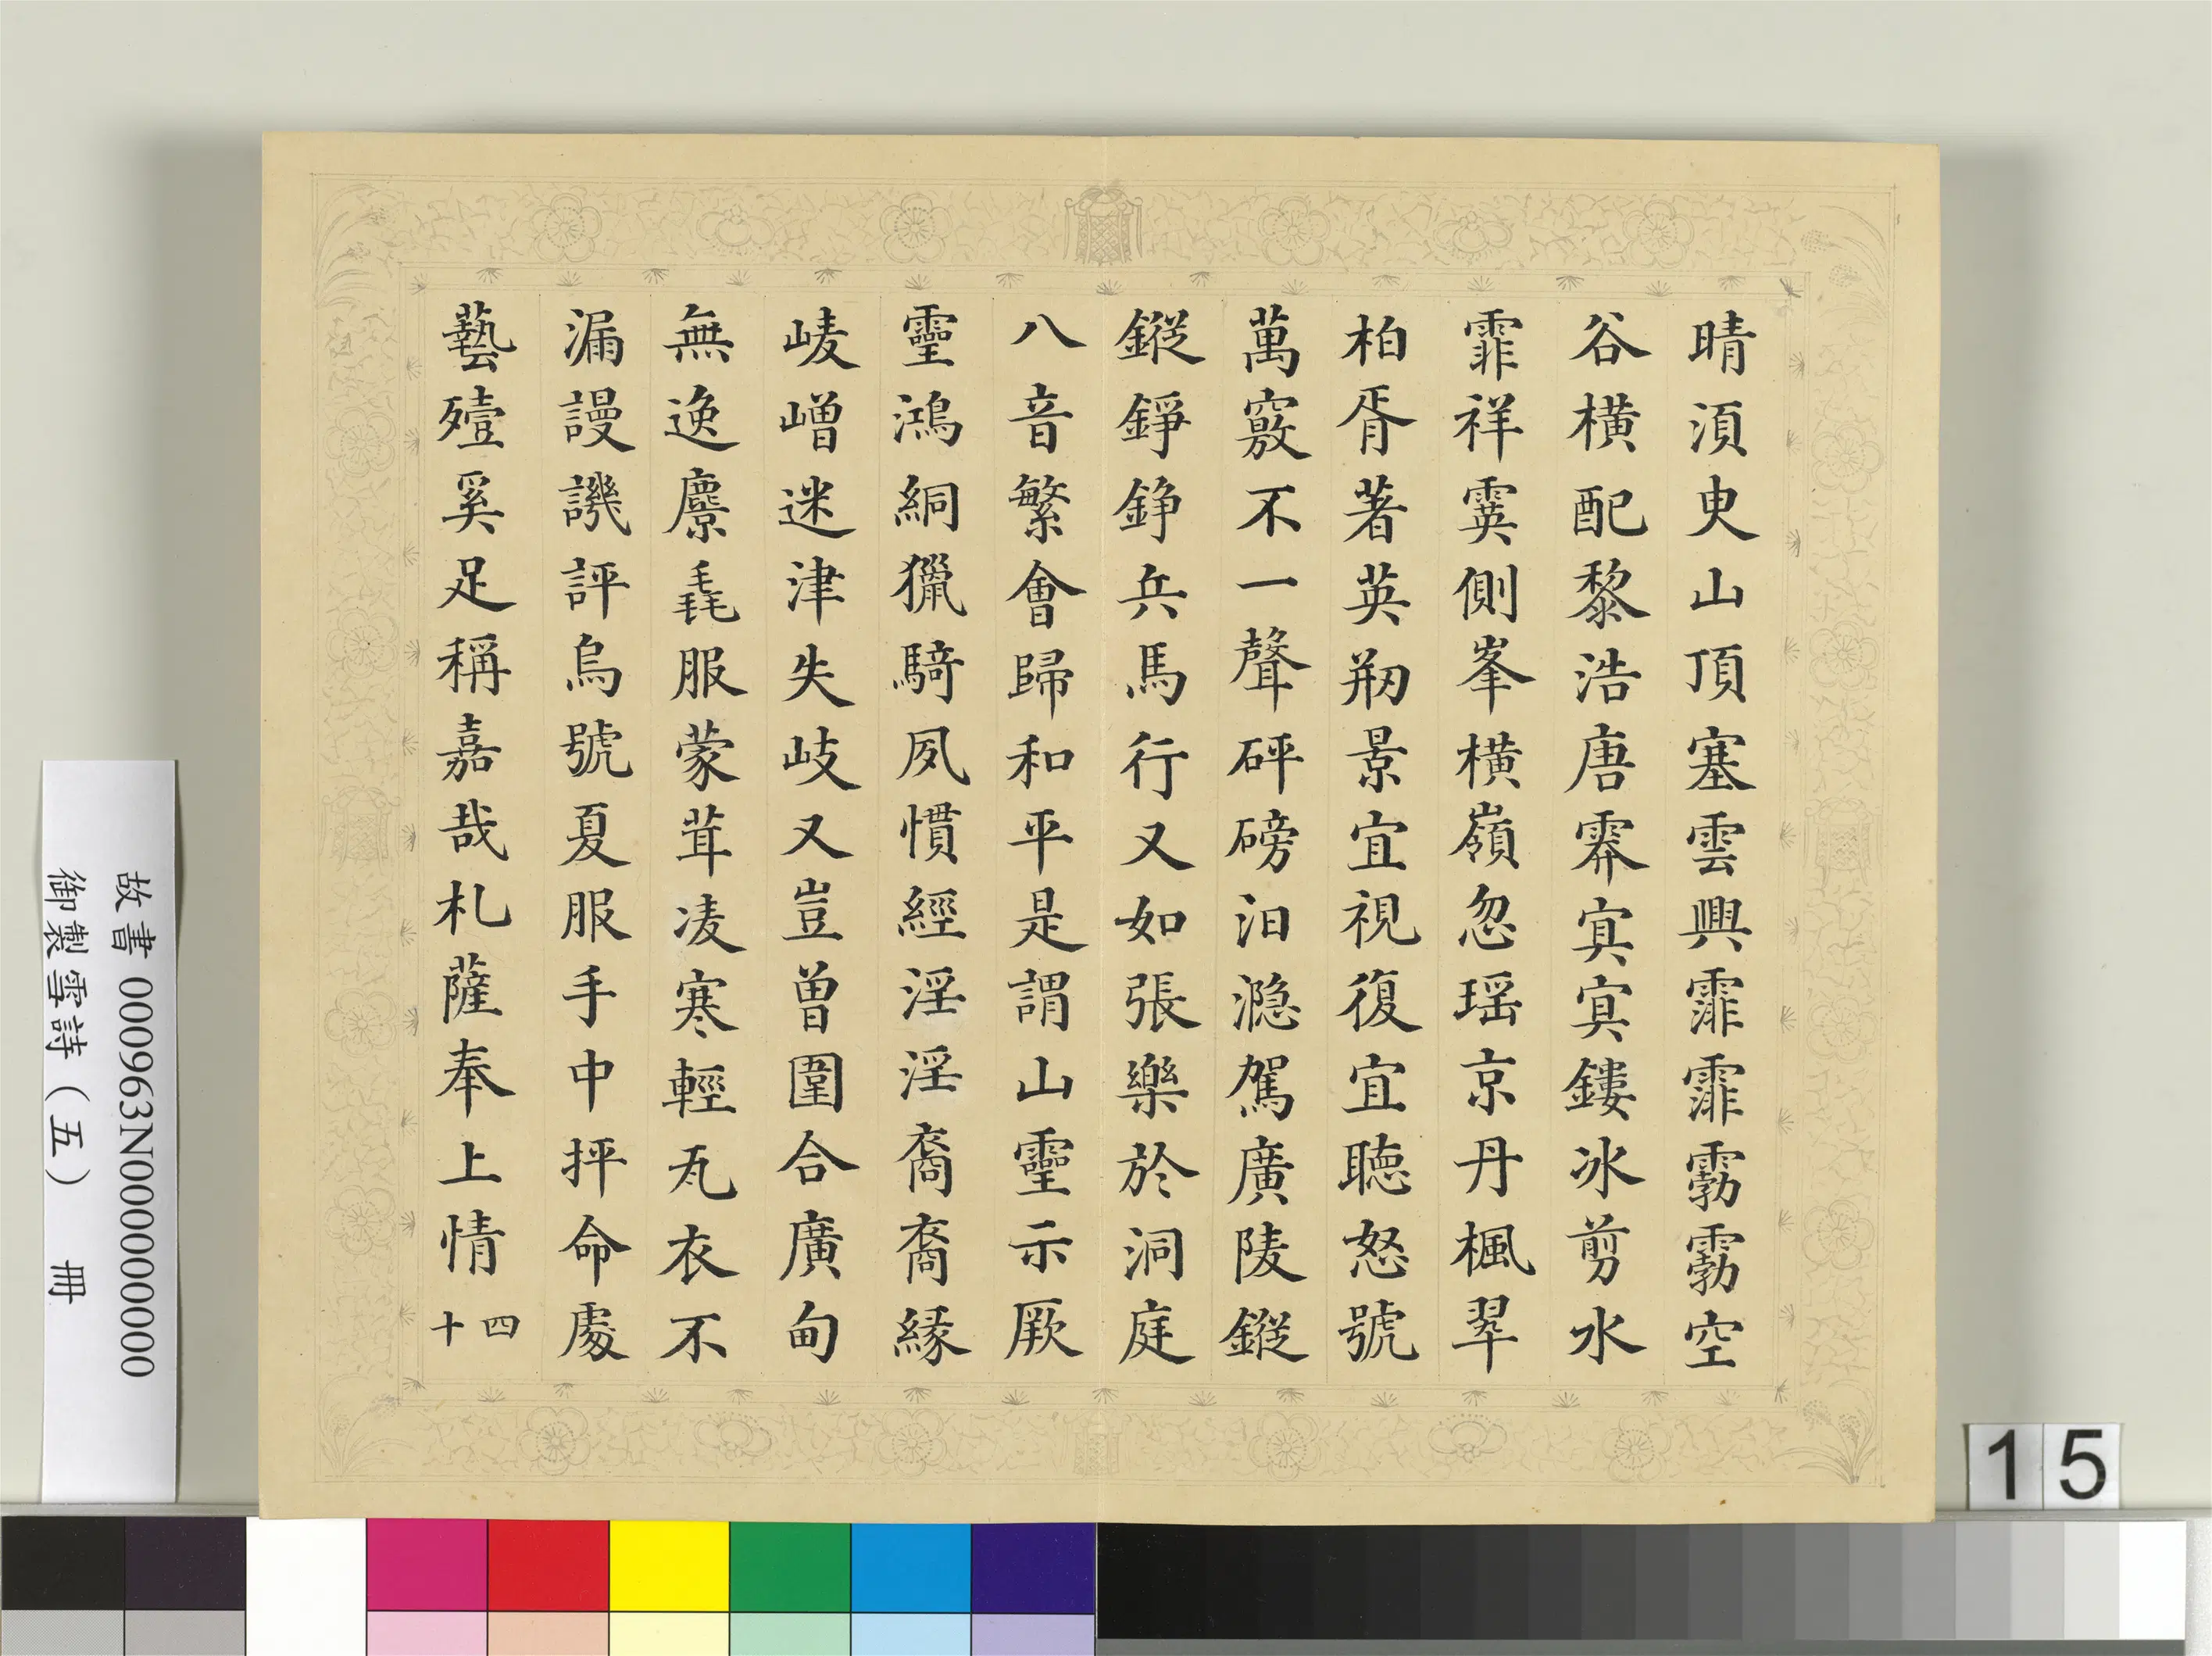 晴須臾山頂塞雲興霏霏霧霧空
谷橫配黎浩唐霁寘寘鏤冰剪水
霏祥霙側峯橫嶺忽瑶京丹楓翠
柏胥著英剏景宜視復宜聽怒號
萬竅不一聲砰磅汩濦駕廣陵鏦
鏦錚錚兵馬行又如張樂於洞庭
八音繁會歸和平是謂山靈示厥
靈鴻絅獵騎夙慣經淫淫裔裔緣
崚嶒迷津失岐又豈曾圍合廣甸
無逸麖毳服蒙茸凌寒輕瓦衣不
漏謾譏評烏號夏服手中抨命處
藝殪奚足稱嘉哉札薩奉上情
十四
故書 000963N000000000
御製雪詩（五） 冊
15